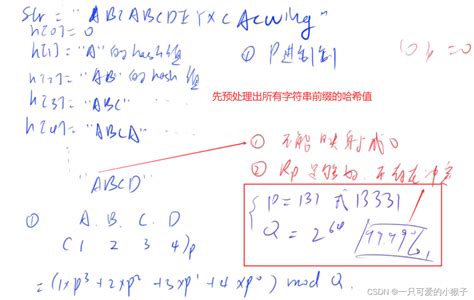 Str = "ABCABCDEYXCAcwing"
h[0] = 0
h[1] = "A" 的hash值
h[2] = "AB" 的hash值
h[3] = "ABC" ......
h[4] = "ABCA" ......
① P进制
(0)p = 0
先预处理出所有字符串前缀的哈希值
① 不能映射成0
② Rp足够好,不存在冲突
"ABCD"
P = 131 或 13331
Q = 2^64
99.99%
① A. B. C. D
( 1 2 3 4 )p
= (1×p³ + 2×p² + 3×p¹ + 4×p⁰) mod Q
CSDN @一只可爱的小猴子